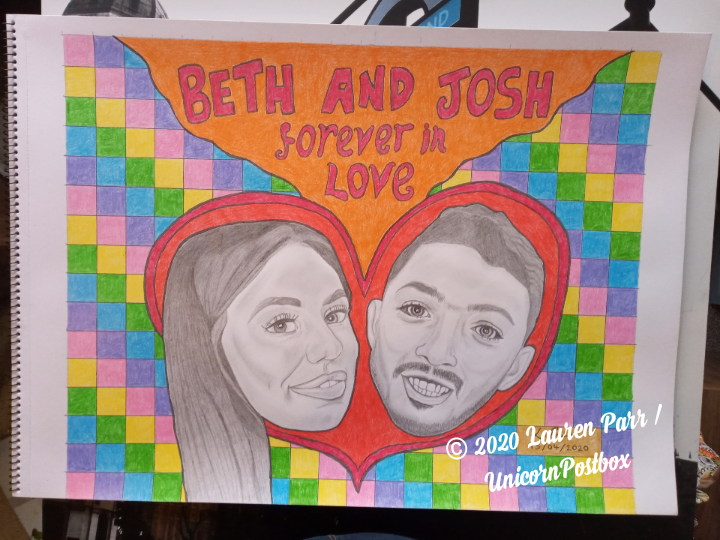 BETH AND JOSH
forever in
LOVE
© 2020 Lauren Parr /
UnicornPostbox